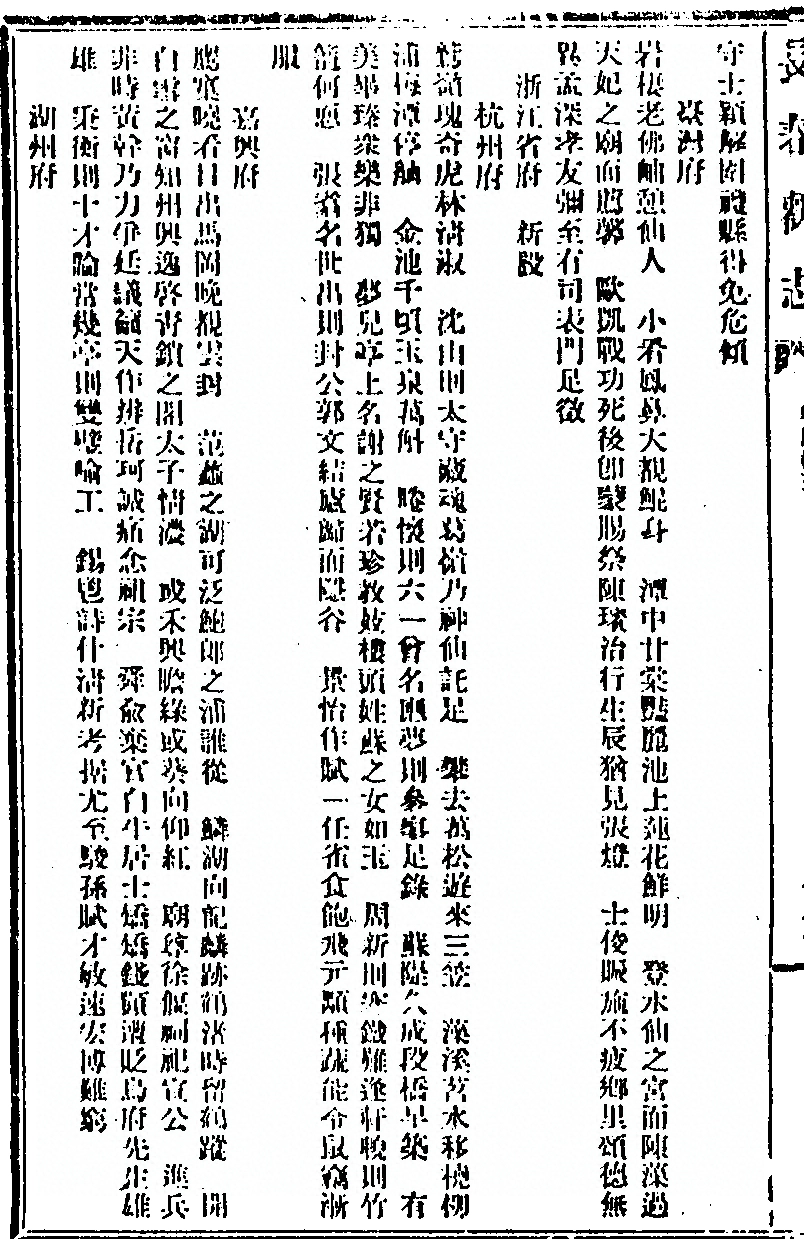 長春觀志
守士穎解圍護縣得免危傾
臺灣府
岩棲老佛岫憩仙人　小看鳳鼻大觀鯤身　潭中甘棠豔麗池上蓮花鮮明　登水仙之宮而陳藻過
天妃之廟而薦馨　歐凱戰功死後卽蒙賜祭陳璸治行生辰猶見張燈　士俊賑施不疲鄉里頌德無
異孟深孝友彌至有司表門足徵
浙江省府　新設
杭州府
葛嶺瑰奇虎林清淑　沈山則太守藏魂葛嶺乃神仙託足　樂去萬松遊來三竺　藻溪苕水移桃柳
浦梅潭停舳　金池千頃玉泉萬斛　勝懷則六一曾名甌夢則參寥足錄　蘇隄久成段橋早築　有
美畢臻衆樂非獨　夢兒亭上名謝之賢若珍教妓樓頭姓蘇之女如玉　周新則寒鐵難逢軒輗則竹
籠何恧　張翁名世出則封公郭文結廬歸而隱谷　景怡作賦一任雀食飽飛元顯種蔬能令鼠竊漸
服
嘉興府
應窠曉看日出馬岡晚觀雲封　范蠡之湖可泛鮑郎之浦誰從　鱗湖向記麟跡鶴渚時留鶴蹤　開
白雲之窗知州興逸啓靑鎖之閣太子情濃　或禾興瞻綠或葵向仰紅　廟尊徐偃祠祀宣公　進兵
非時黃幹乃力爭廷議籲天作辨岳珂誠痛念祖宗　舜兪棄官白牛居士矯矯錢顗遭貶烏府先生雄
雄　秉衡則十才喻當幾亭則雙璧喻工　錫鬯詩什清新考据尤至駿孫賦才敏速宏博難窮
湖州府